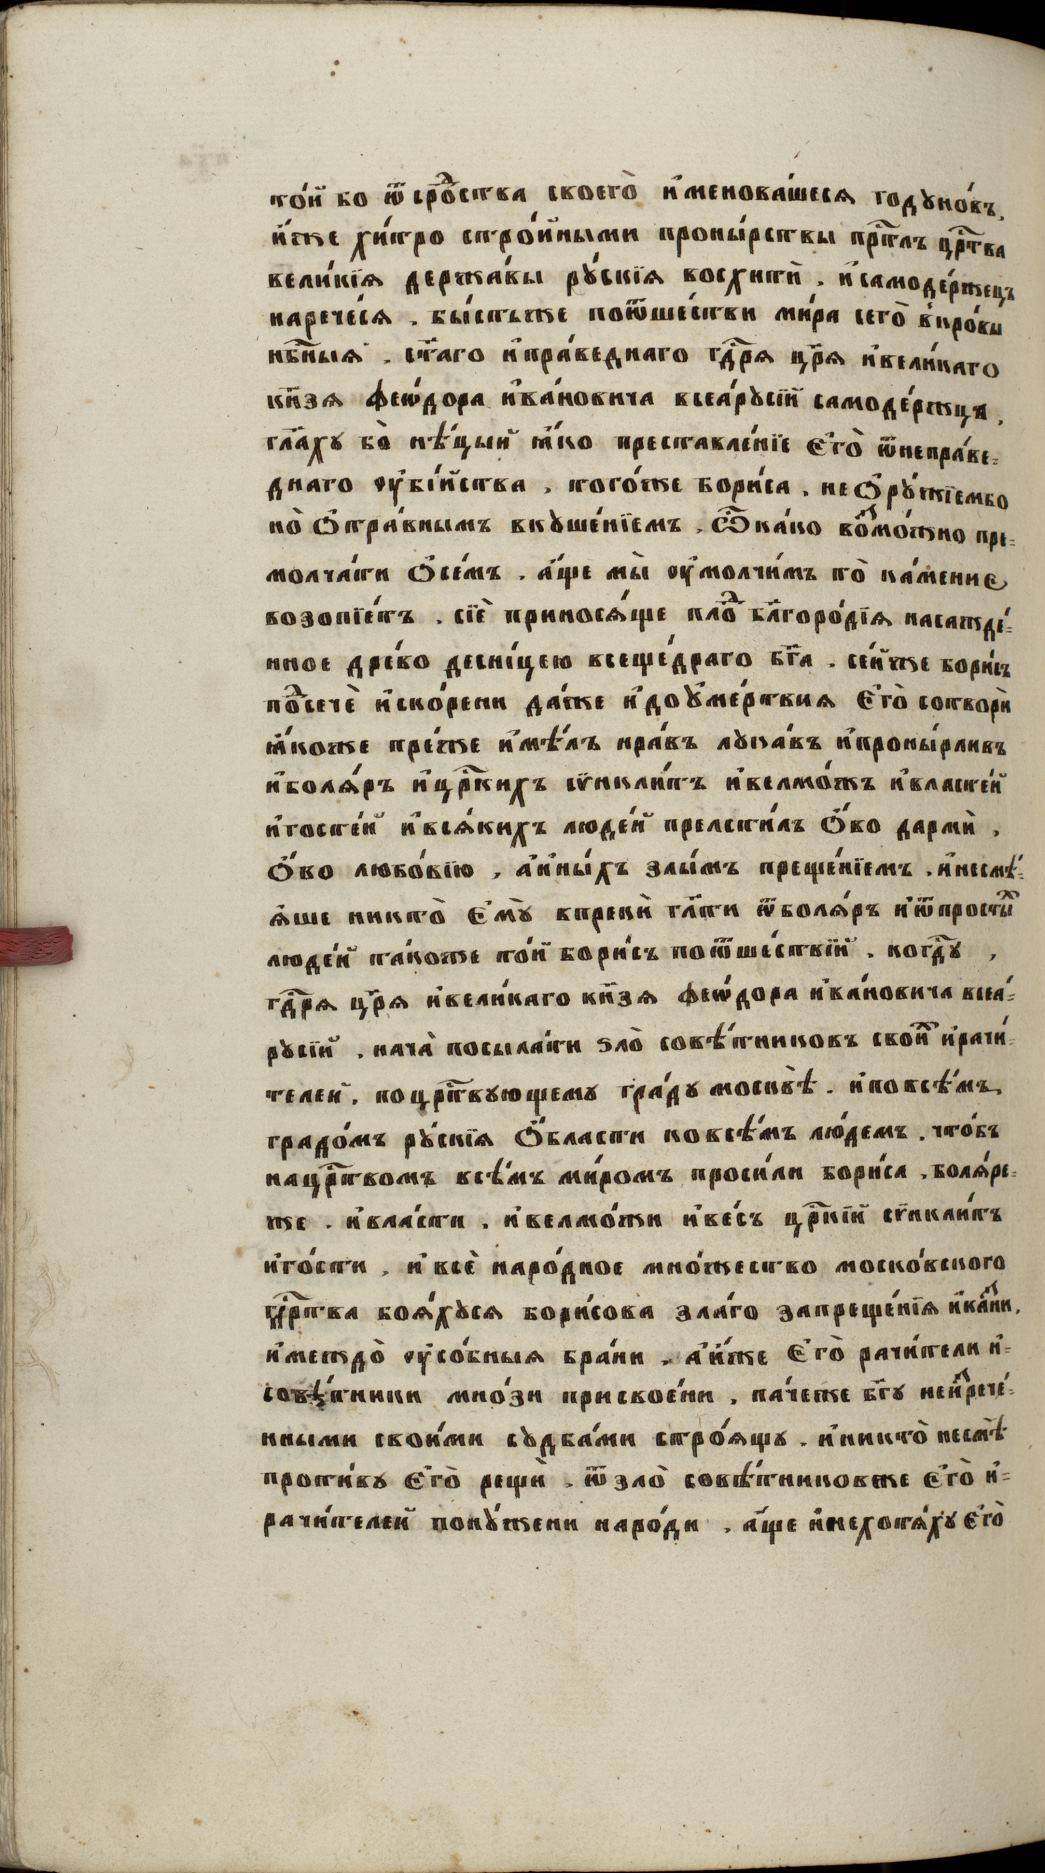 то́й бо ѿ сро́дства своего̀ и҆менова́шеся годꙋно́въ,
и҆́же хи́тро стро́йными проны́рствы прⷭ҇тлъ црⷭ҇тва
вели́кїя держа́вы рꙋ́скїя восхитѝ . и҆самоде́ржецъ
нарече́ся . бы́стьже поѿше́стви ми́ра сегѡ̀ в̾кро́вы
нбⷭ҇ныя . ст҃а́го и҆пра́веднаго гдⷭ҇ря цр҃я и҆вели́каго
кн҃зя ѳеѡ́дора и҆ва́новича всеа́рꙋсїй самоде́ржца ,
гл҃ахꙋ бо̀ нѣ́цый ꙗ҆́ко преставле́нїе є҆го̀ ѿнепра́ве-
днаго ᲂу҆бі́йства , того́же бори́са . не ѻ҆рꙋ́жїемъбо
но̀ ѻ҆тра́внымъ вкꙋше́нїемъ . Ѽ ка́ко во҆змо́жно пре-
молча́ти ѻ҆се́мъ . а҆́ще мы̀ ᲂу҆молчи́мъ то̀ ка́мение
возопїе́тъ . сїѐ принося́ще пло́дъ бл҃горо́дїя насажде́-
нное дре́во десни́цею всеще́драго бг҃а . се́йже бори́съ
посечѐ и҆скорени да́же и҆доᲂу҆ме́ртвия є҆го̀ сотворѝ
ꙗ҆́коже пре́же и҆мѣ́лъ нра́въ лꙋка́въ и҆проны́рливъ
и҆боля́ръ и҆црⷭ҇кихъ сѷнкли́тъ и҆велмо́жъ и҆власте́й
и҆госте́й и҆вся́кихъ люде́й прелсти́лъ ѻ҆́во дармѝ ,
ѻ҆́во любо́вїю , а҆и҆ны́хъ злы́мъ преще́нїемъ . и҆несмѣ́-
ꙗше никто̀ є҆мꙋ̀ впрекѝ гл҃ти ѿболя́ръ и҆ѿпросты́хъ
люде́й та́коже то́й бори́съ поѿше́ствїй . когⷣꙋ ,
гдⷭ҇ря цр҃я и҆вели́каго кн҃зя ѳеѡ́дора и҆ва́новича всеа́-
рꙋсїй . нача̀ посыла́ти ѕло̀ совѣ́тниковъ свои́хъ и҆рачи́-
телей . поцрⷭ҇твующемꙋ гра́дꙋ москвѣ̀ . и҆повсѣ́мъ
градо́мъ рꙋ́скїя ѻ҆́бласти ковсѣ́мъ лю́демъ . что́бъ
нацрⷭ҇твомъ всѣ́мъ ми́ромъ просили бори́са . боля́ре-
же . и҆вла́сти . и҆велмо́жи и҆ве́съ црⷭ҇кїй сѷнкли́тъ
и҆го́сти . и҆ всѐ наро́дное мно́жество моско́вского
црⷭ҇тва боя́хꙋся бори́сова зла́го запреще́нїя и҆ка́зни ,
и҆междо̀ ᲂу҆со́бныя бра́ни . а҆и҆́же є҆го̀ рачи́тели и҆-
совѣ́тники мно́зи присвое́ни . па́чеже бг҃ꙋ неи҆зрече́-
нными свои́ми сꙋдба́ми стро́ящꙋ . и҆никто̀ несмѣ̀
проти́вꙋ є҆го̀ рещѝ . ѿ зло̀ совѣ́тниковже є҆го̀ и҆-
рачи́телей понꙋ́жени наро́ди , а҆́ще и҆нехотя́хꙋ є҆го̀